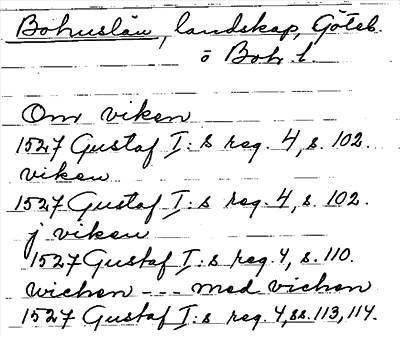 Bohuslän, landskap, Göteb.
o Boh. l.
Om viken
1527 Gustaf I:s reg. 4, s. 102.
viken
1527 Gustaf I:s reg. 4, s. 102.
j viken
1527 Gustaf I:s reg. 4, s. 110.
wichen --- med vichen
1527 Gustaf I:s reg. 4, ss. 113, 114.